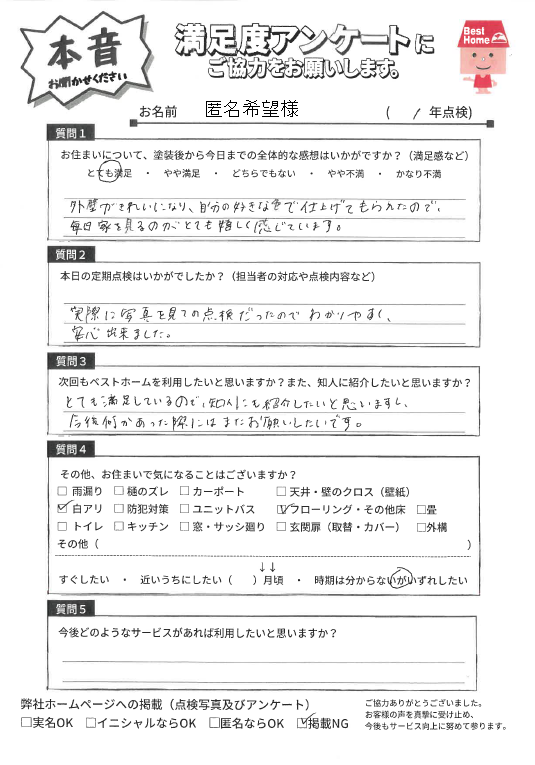 本音
お聞かせください
満足度アンケートに
ご協力をお願いします。
Best Home
お名前 匿名希望様 ( / 年点検)
質問1
お住まいについて、塗装後から今日までの全体的な感想はいかがですか？（満足感など）
とても満足 ・ やや満足 ・ どちらでもない ・ やや不満 ・ かなり不満
外壁がきれいになり、自分の好きな色で仕上げてもられたので、
毎日家を見るのがとても嬉しく感じています。
質問2
本日の定期点検はいかがでしたか？（担当者の対応や点検内容など）
実際に写真を見ての点検だったのでわかりやすく、
安心出来ました。
質問3
次回もベストホームを利用したいと思いますか？また、知人に紹介したいと思いますか？
とても満足しているので、知人にも紹介したいと思いますし、
今後何かあった際にはまたお願いしたいです。
質問4
その他、お住まいで気になることはございますか？
□ 雨漏り □ 樋のズレ □ カーポート □ 天井・壁のクロス（壁紙）
☑ 白アリ □ 防犯対策 □ ユニットバス ☑ フローリング・その他床 □ 畳
□ トイレ □ キッチン □ 窓・サッシ廻り □ 玄関扉（取替・カバー） □ 外構
その他（ ）
↓↓
すぐしたい ・ 近いうちにしたい（ ）月頃 ・ 時期は分からないがいずれしたい
質問5
今後どのようなサービスがあれば利用したいと思いますか？
弊社ホームページへの掲載（点検写真及びアンケート）
□実名OK □イニシャルならOK □匿名ならOK ☑掲載NG
ご協力ありがとうございました。
お客様の声を真摯に受け止め、
今後もサービス向上に努めて参ります。